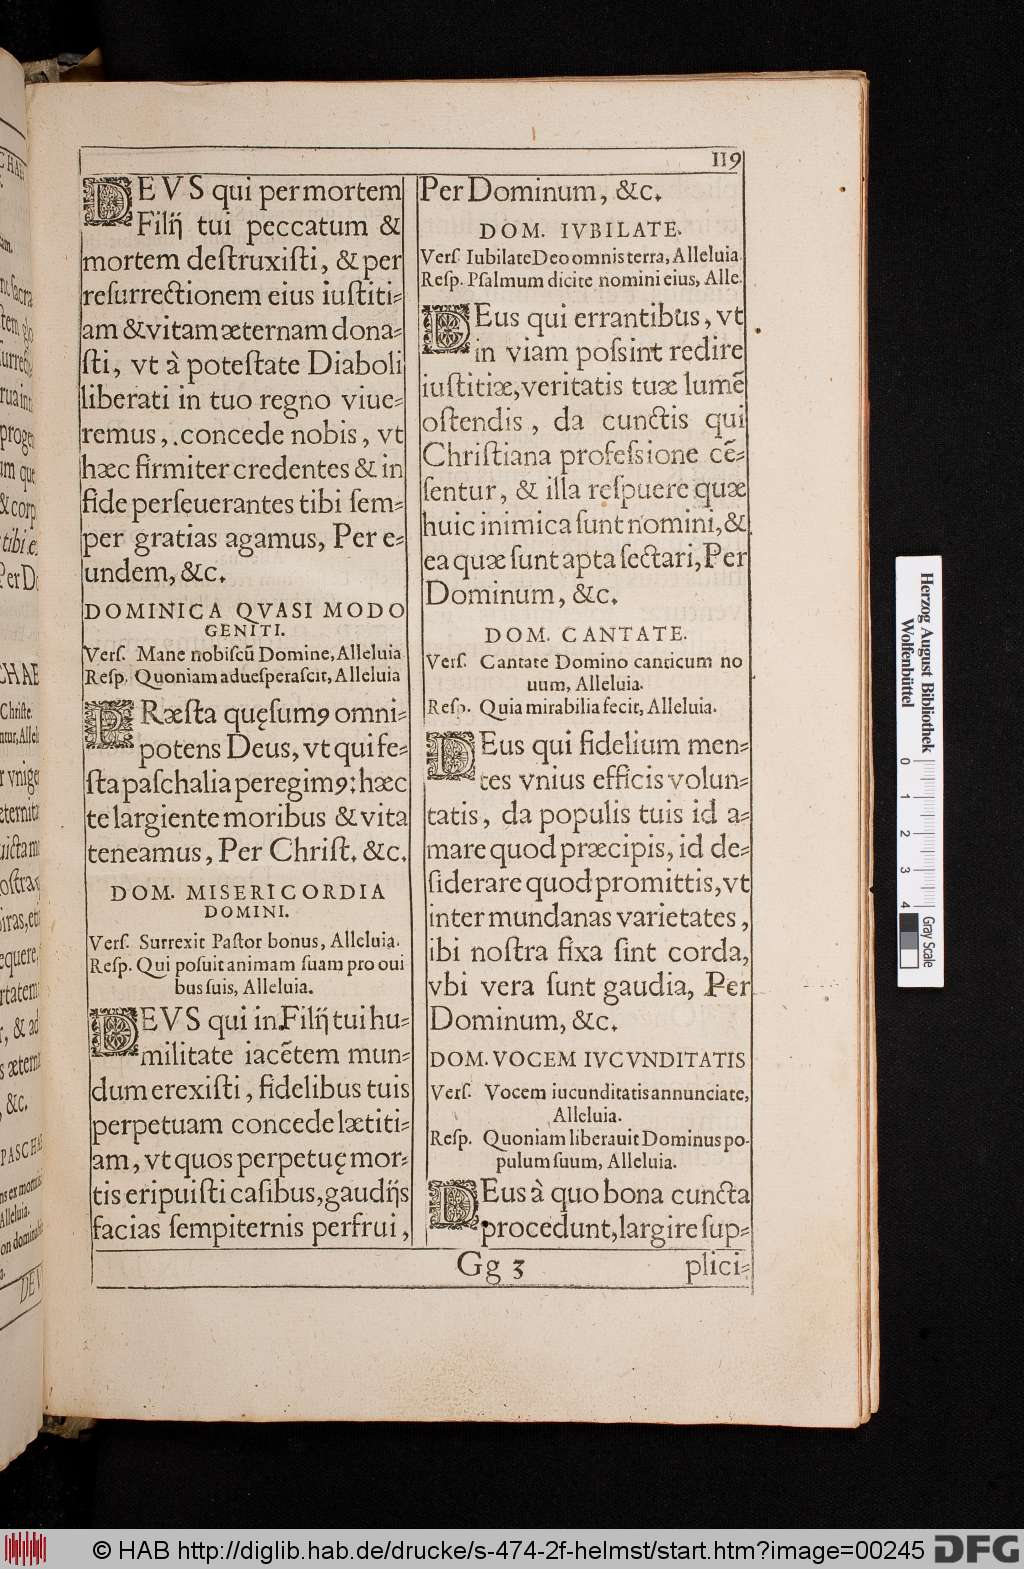 119
DEVS qui per mortem
Filij tui peccatum &
mortem deſtruxiſti, & per
reſurrectionem eius iuſtiti-
am & vitam æternam dona-
ſti, vt à poteſtate Diaboli
liberati in tuo regno viue-
remus, concede nobis, vt
hæc firmiter credentes & in
fide perſeuerantes tibi ſem-
per gratias agamus, Per e-
undem, &c.
DOMINICA QVASI MODO
GENITI.
Verſ. Mane nobiſcũ Domine, Alleluia
Reſp. Quoniam aduesperaſcit, Alleluia
PRæſta quęſumꝰ omni-
potens Deus, vt qui fe-
ſta paſchalia peregimꝰ: hæc
te largiente moribus & vita
teneamus, Per Chriſt. &c.
DOM. MISERICORDIA
DOMINI.
Verſ. Surrexit Paſtor bonus, Alleluia.
Reſp. Qui poſuit animam ſuam pro oui
bus ſuis, Alleluia.
DEVS qui in Filij tui hu-
militate iacẽtem mun-
dum erexiſti, fidelibus tuis
perpetuam concede lætiti-
am, vt quos perpetuę mor-
tis eripuiſti caſibus, gaudijs
facias ſempiternis perfrui,
Per Dominum, &c.
DOM. IVBILATE.
Verſ. Iubilate Deo omnis terra, Alleluia.
Reſp. Pſalmum dicite nomini eius, Alle.
DEus qui errantibus, vt
in viam poſsint redire
iuſtitiæ, veritatis tuæ lumẽ
oſtendis, da cunctis qui
Chriſtiana profeſsione cẽ-
ſentur, & illa reſpuere quæ
huic inimica ſunt nomini, &
ea quæ ſunt apta ſectari, Per
Dominum, &c.
DOM. CANTATE.
Verſ. Cantate Domino canticum no
uum, Alleluia.
Reſp. Quia mirabilia fecit, Alleluia.
DEus qui fidelium men-
tes vnius efficis volun-
tatis, da populis tuis id a-
mare quod præcipis, id de-
ſiderare quod promittis, vt
inter mundanas varietates,
ibi noſtra fixa ſint corda,
vbi vera ſunt gaudia, Per
Dominum, &c.
DOM. VOCEM IVCVNDITATIS
Verſ. Vocem iucunditatis annunciate,
Alleluia.
Reſp. Quoniam liberauit Dominus po-
pulum ſuum, Alleluia.
DEus à quo bona cuncta
procedunt, largire ſup-
Gg 3 plici-
Herzog August Bibliothek
Wolfenbüttel
0 1 2 3 4
Gray Scale
© HAB http://diglib.hab.de/drucke/s-474-2f-helmst/start.htm?image=00245 DFG